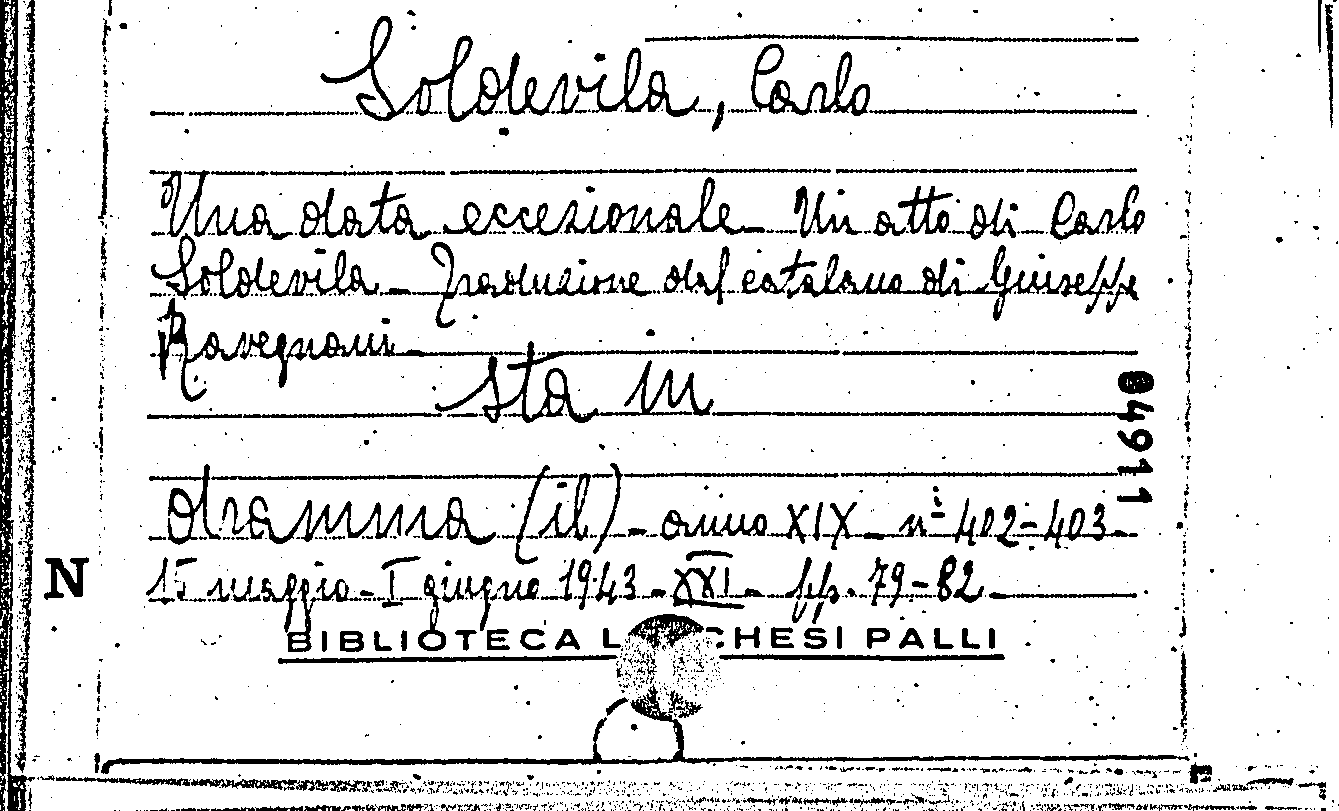 Soldevila, Carlo
Una data eccezionale - Un atto di Carlo
Soldevila - Traduzione dal catalano di Giuseppe
Ravegnani -
sta in
04911
dramma (il) - anno XIX - nº 402-403 -
N
15 maggio - I giugno 1943 - XXI - pp. 79-82 -
BIBLIOTECA L CHESI PALLI